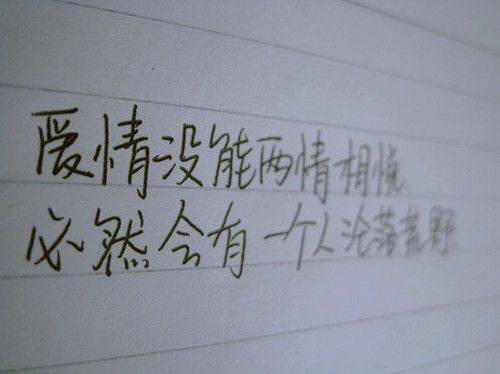 爱情没能两情相悦
必然会有一个人沦落荒野